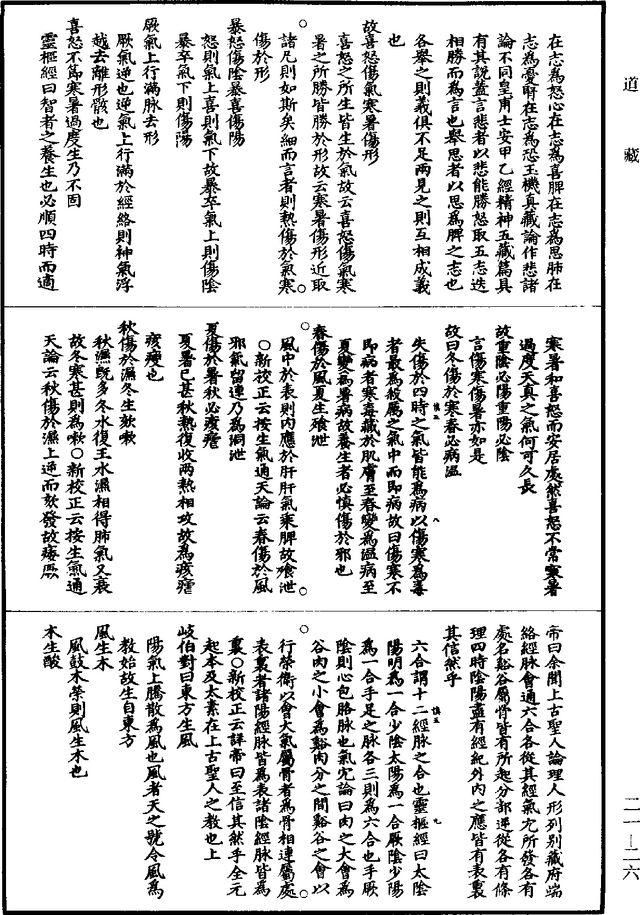 道藏
在志為怒心在志為喜脾在志為思肺在
志為憂腎在志為恐玉機真藏論作悲諸
論不同皇甫士安甲乙經精神五藏篇具
有其說蓋言悲者以悲能勝怒取五志迭
相勝而為言也舉思者以思為脾之志也
各舉之則義俱不足兩見之則互相成義
也
故喜怒傷氣寒暑傷形
喜怒之所生皆生於氣故云喜怒傷氣寒
暑之所勝皆勝於形故云寒暑傷形近取
諸凡則如斯矣細而言者則熱傷於氣寒
傷於形
暴怒傷陰暴喜傷陽
怒則氣上喜則氣下故暴卒氣上則傷陰
暴卒氣下則傷陽
厥氣上行滿脉去形
厥氣逆也逆氣上行滿於經絡則神氣浮
越去離形骸也
喜怒不節寒暑過度生乃不固
靈樞經曰智者之養生也必順四時而適
寒暑和喜怒而安居處然喜怒不常寒暑
過度天真之氣何可久長
故重陰必陽重陽必陰
言傷寒傷暑亦如是
故曰冬傷於寒春必病溫
失傷於四時之氣皆能為病以傷寒為毒
者最為殺厲之氣中而即病故曰傷寒不
即病者寒毒藏於肌膚至春變為溫病至
夏變為暑病故養生者必慎傷於邪也
春傷於風夏生飱泄
風中於表則內應於肝肝氣乘脾故飱泄
○新校正云按生氣通天論云春傷於風
邪氣留連乃為洞泄
夏傷於暑秋必痎瘧
夏暑已甚秋熱復收兩熱相攻故為痎瘧
痎瘦也
秋傷於濕冬生欬嗽
秋濕既多冬水復王水濕相得肺氣又衰
故冬寒甚則為嗽○新校正云按生氣通
天論云秋傷於濕上逆而欬發故痿厥
帝曰余聞上古聖人論理人形列別藏府端
絡經脉會通六合各從其經氣穴所發各有
處名谿谷屬骨皆有所起分部逆從各有條
理四時陰陽盡有經紀外內之應皆有表裏
其信然乎
六合謂十二經脉之合也靈樞經曰太陰
陽明為一合少陰太陽為一合厥陰少陽
為一合手足之脉各三則為六合也手厥
陰則心包胳脉也氣穴論曰肉之大會為
谷肉之小會為谿肉分之間谿谷之會以
行榮衛以會大氣屬骨者為骨相連屬處
表裏者諸陽經脉皆為表諸陰經脉皆為
裏○新校正云詳帝曰至信其然乎全元
起本及太素在上古聖人之教也上
岐伯對曰東方生風
陽氣上騰散為風也風者天之號令風為
教始故生自東方
風生木
風鼓木榮則風生木也
木生酸
二一—二六